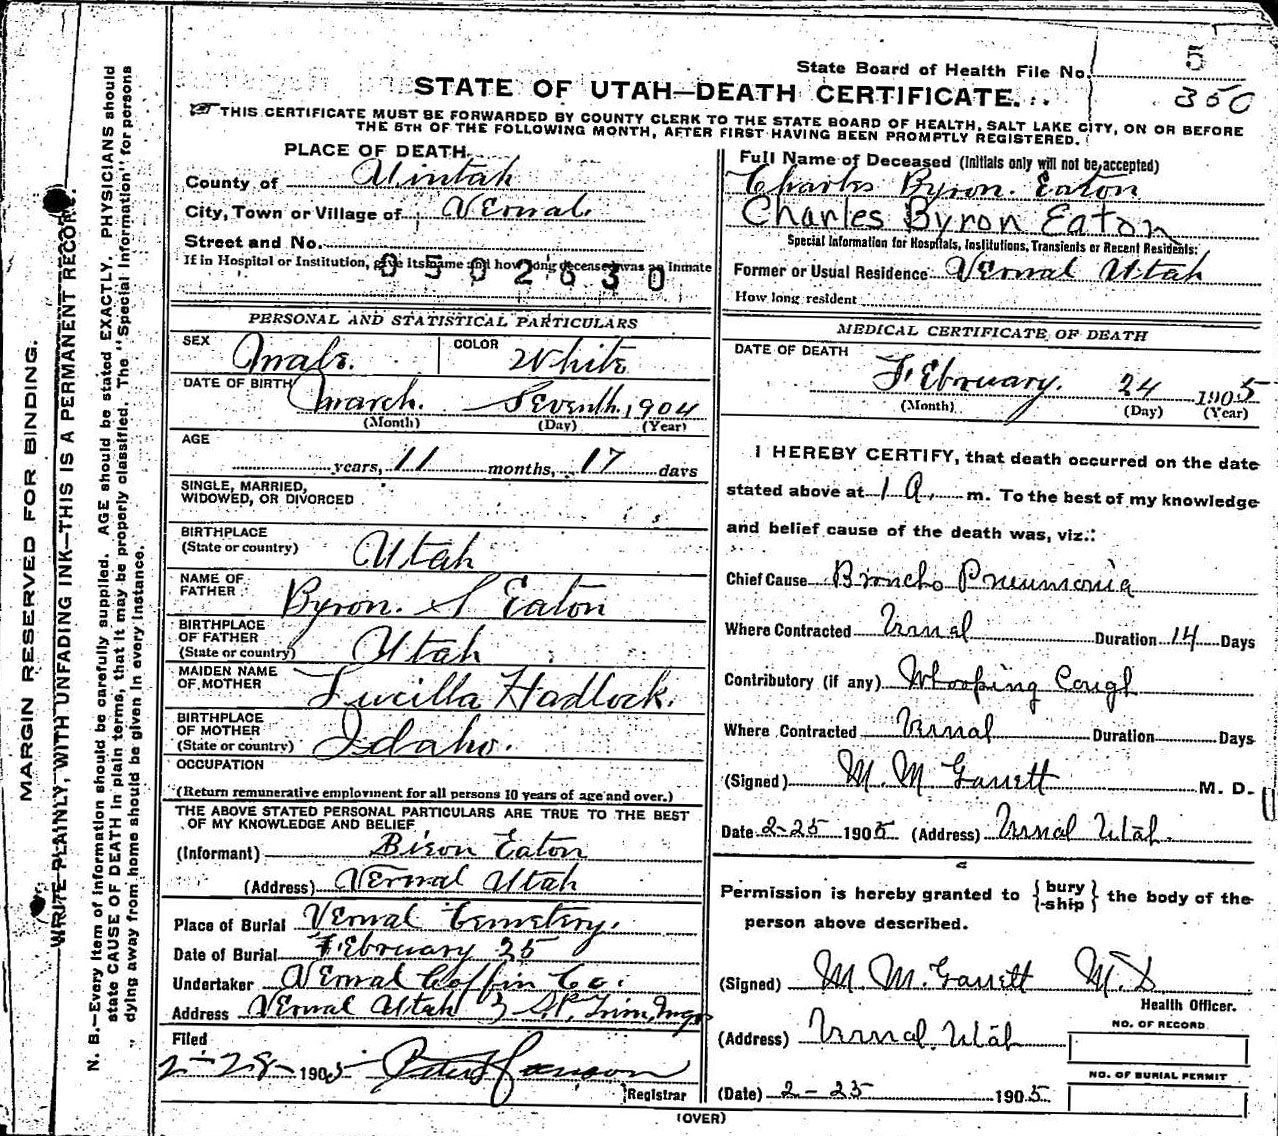 State Board of Health File No. 5
350
STATE OF UTAH—DEATH CERTIFICATE.
THIS CERTIFICATE MUST BE FORWARDED BY COUNTY CLERK TO THE STATE BOARD OF HEALTH, SALT LAKE CITY, ON OR BEFORE
THE 5TH OF THE FOLLOWING MONTH, AFTER FIRST HAVING BEEN PROMPTLY REGISTERED.
MARGIN RESERVED FOR BINDING.
WRITE PLAINLY, WITH UNFADING INK—THIS IS A PERMANENT RECORD.
N. B.—Every item of information should be carefully supplied. AGE should be stated EXACTLY. PHYSICIANS should
state CAUSE OF DEATH in plain terms, that it may be properly classified. The "Special Information" for persons
dying away from home should be given in every instance.
PLACE OF DEATH
County of Uintah
City, Town or Village of Vernal
Street and No.
If in Hospital or Institution, give its name and how long deceased was an inmate
0502630
PERSONAL AND STATISTICAL PARTICULARS
SEX Male. COLOR White
DATE OF BIRTH March. Seventh, 1904
(Month) (Day) (Year)
AGE
years, 11 months, 17 days
SINGLE, MARRIED,
WIDOWED, OR DIVORCED
BIRTHPLACE
(State or country) Utah
NAME OF
FATHER Byron. S Eaton
BIRTHPLACE
OF FATHER
(State or country) Utah
MAIDEN NAME
OF MOTHER Lucilla Hadlock.
BIRTHPLACE
OF MOTHER
(State or country) Idaho.
OCCUPATION
(Return remunerative employment for all persons 10 years of age and over.)
THE ABOVE STATED PERSONAL PARTICULARS ARE TRUE TO THE BEST
OF MY KNOWLEDGE AND BELIEF
(Informant) Biron Eaton
(Address) Vernal Utah
Place of Burial Vernal Cemetery.
Date of Burial February 25
Undertaker Vernal Coffin Co.
Address Vernal Utah
Filed
2-28- 1905
Registrar
Full Name of Deceased (Initials only will not be accepted)
Charles Byron. Eaton
Charles Byron Eaton
Special Information for Hospitals, Institutions, Transients or Recent Residents:
Former or Usual Residence Vernal Utah
How long resident
MEDICAL CERTIFICATE OF DEATH
DATE OF DEATH
February. 24 1905
(Month) (Day) (Year)
I HEREBY CERTIFY, that death occurred on the date
stated above at 1 A. m. To the best of my knowledge
and belief cause of the death was, viz.:
Chief Cause Broncho Pneumonia
Where Contracted Vernal Duration 14 Days
Contributory (if any) Whooping Cough
Where Contracted Vernal Duration Days
(Signed) M. M Garrett M. D.
Date 2-25 1905 (Address) Vernal Utah.
Permission is hereby granted to {bury
ship} the body of the
person above described.
(Signed) M. M. Garrett M.D
Health Officer.
(Address) Vernal. Utah
NO. OF RECORD
NO. OF BURIAL PERMIT
(Date) 2-25 1905
(OVER)